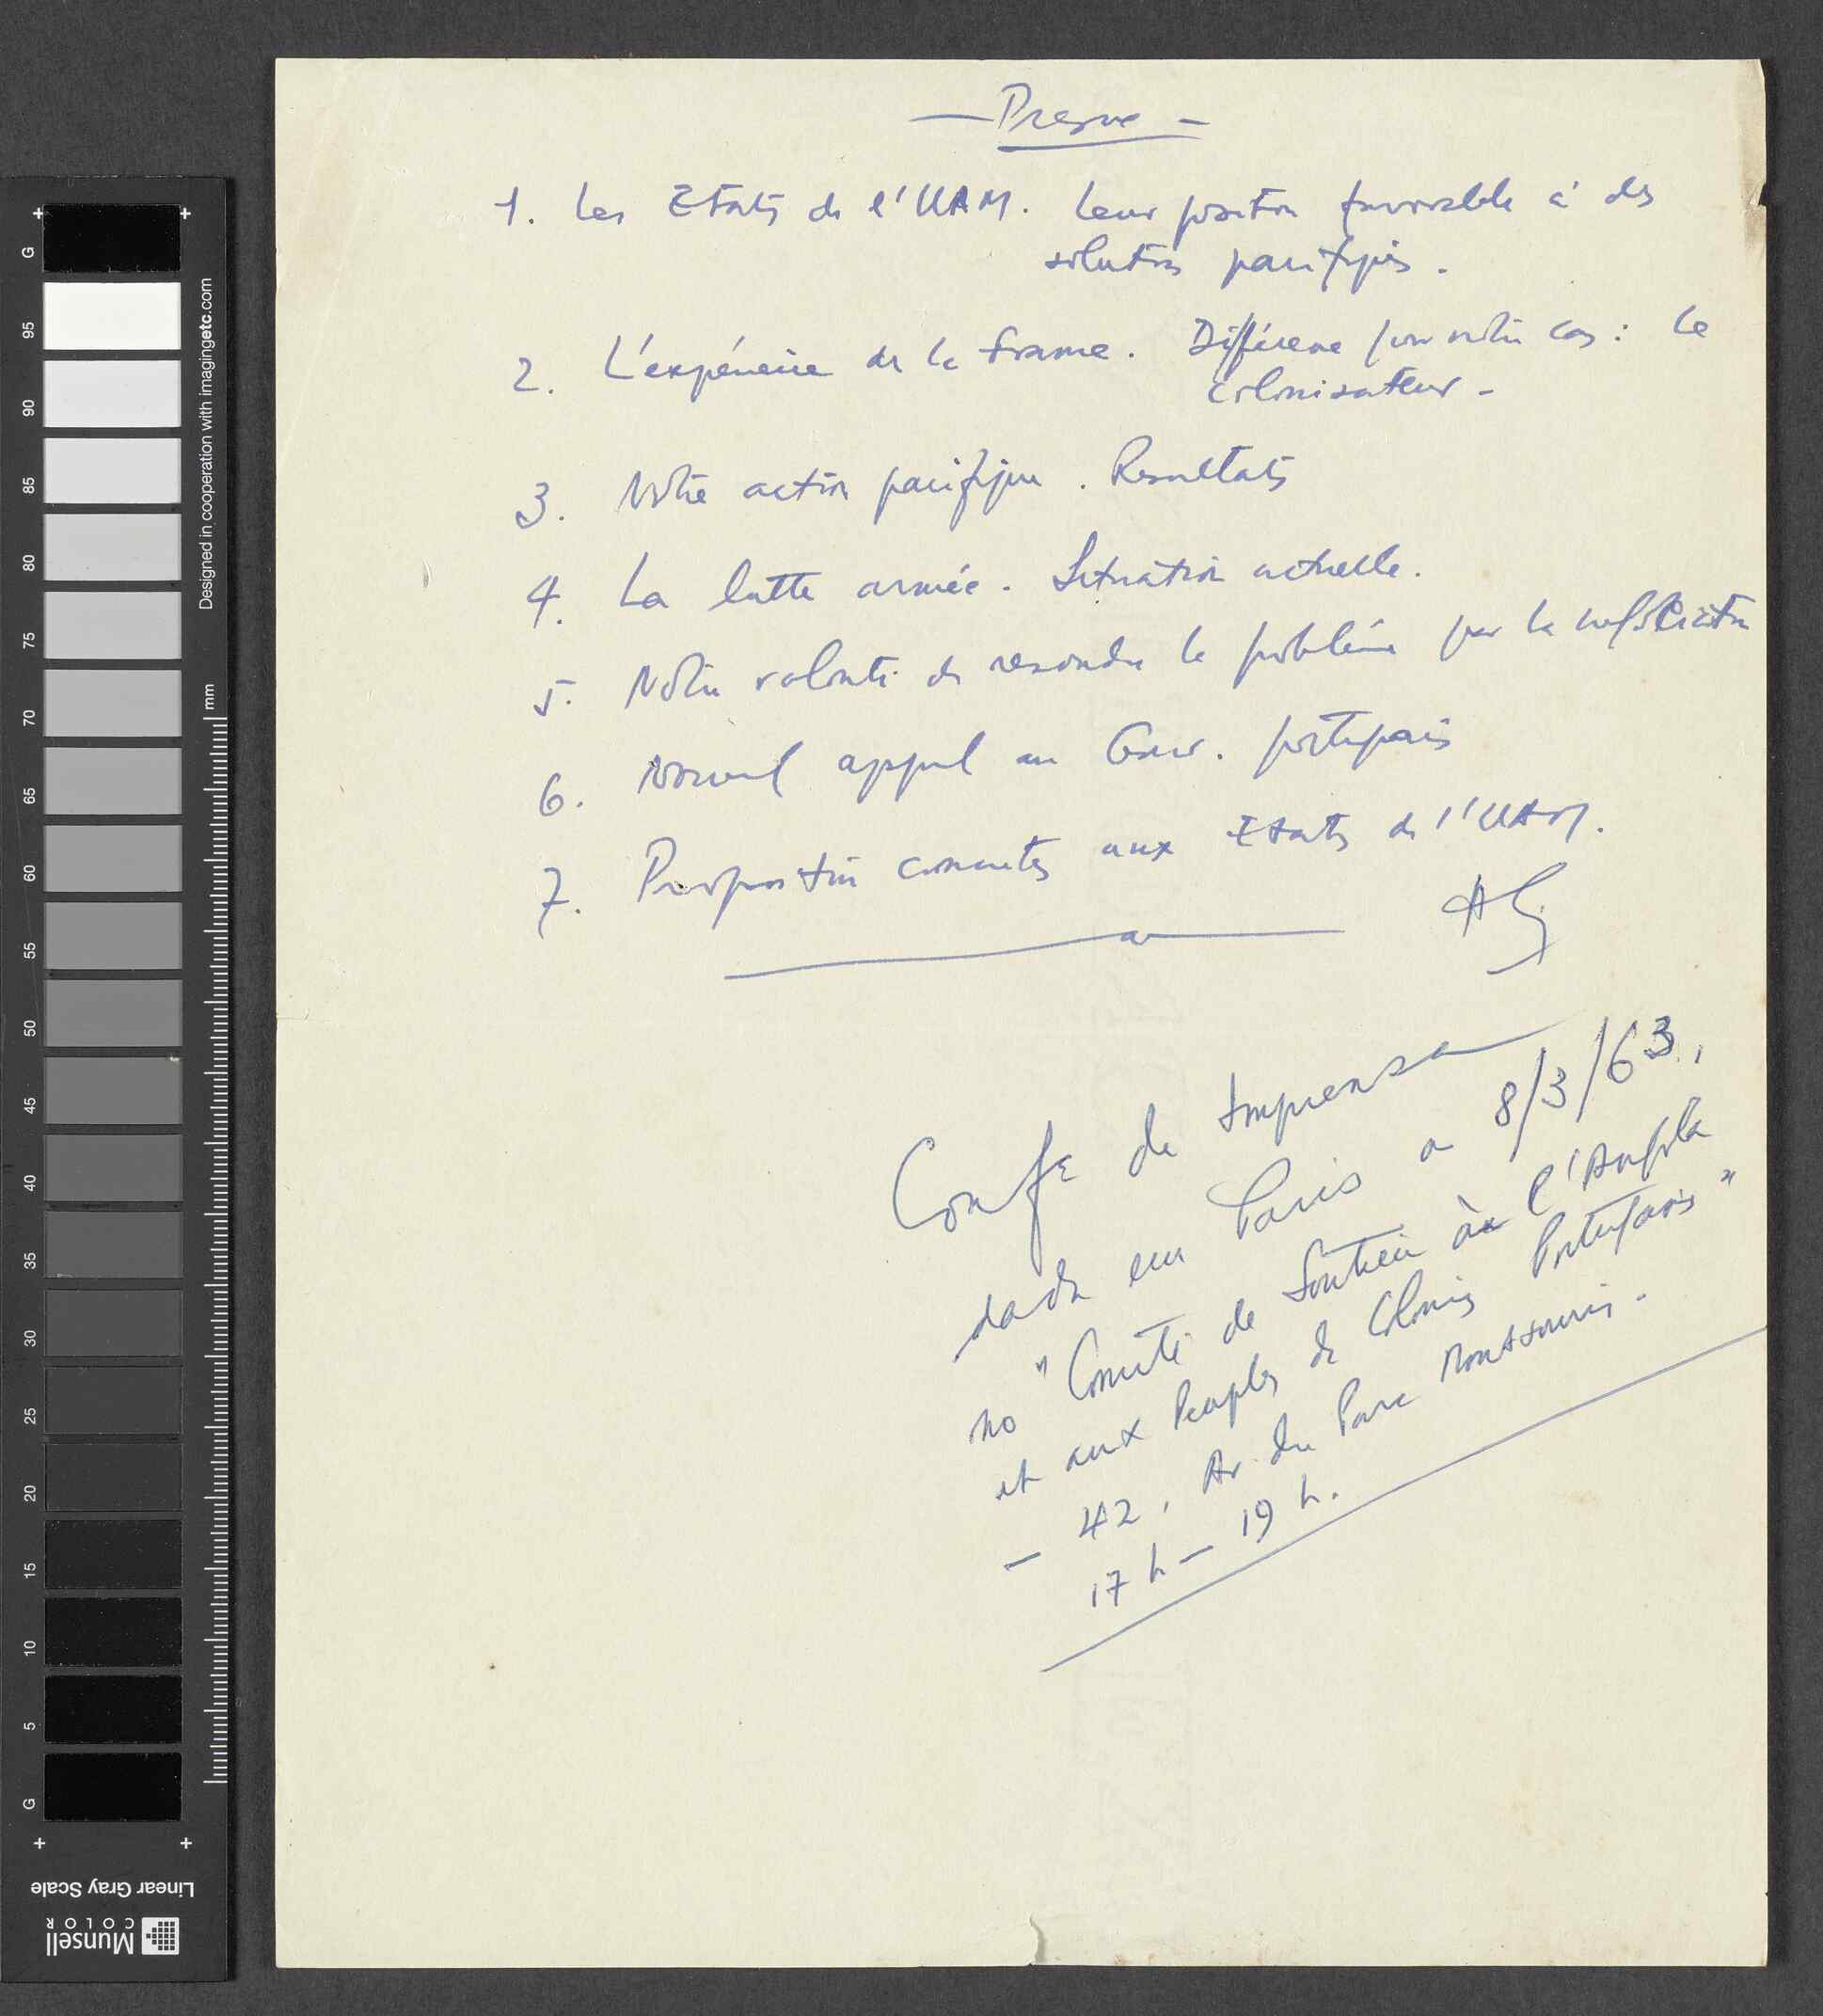 — Presse —
1. Les Etats de l'UAM. Leur position favorable à des
solutions pacifiques.
2. L'expérience de la France. Différence pour notre cas : le
colonisateur -
3. Notre action pacifique. Resultats
4. La lutte armée. Situation actuelle.
5. Notre volonté de resoudre le problème par la négociation
6. Nouvel appel au Gouv. portugais
7. Propositions concretes aux Etats de l'UAM.
Confª de Imprensa
dada em Paris a 8/3/63,
no "Comité de Soutien à l'Angola
et aux Peuples des Colonies Portugaises"
— 42, Av. du Parc Montsouris.
17 h — 19 h.
G
95
90
85
80
75
70
65
60
55
50
45
40
35
30
25
20
15
10
5
G
mm
Designed in cooperation with imagingetc.com
Linear Gray Scale
Munsell
COLOR